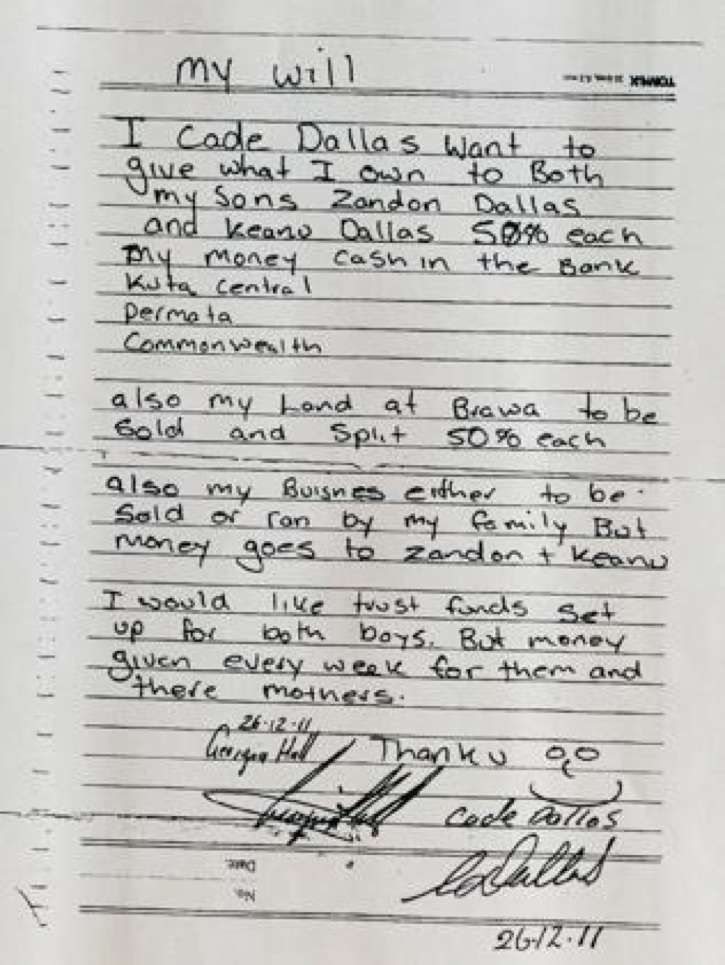 my will
TOMPEX
I Cade Dallas want to
give what I own to Both
my Sons Zandon Dallas
and Keano Dallas 50% each
My money cash in the Bank
Kuta Central
Permata
Commonwealth
also my Land at Brawa to be
Sold and Split 50% each
also my Buisnes either to be
Sold or ran by my family But
money goes to Zandon + Keano
I would like trust funds set
up for both boys. But money
given every week for them and
there mothers.
26-12-11
Georgina Hall
Thank u
Cade Dallas
CaDallas
Date:
No.
26-12-11